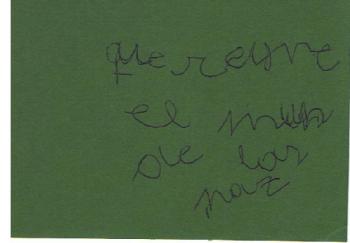 que reyne
el
de las
paz